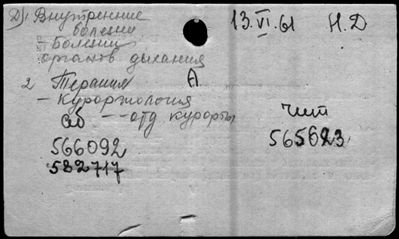 Д) Внутренние 13.VI.61 Н.Д
болезни
Болезни
органов дыхания
2 Терапия А
- Курортология
Об --- отд курорты Чит
566092 565623
582717